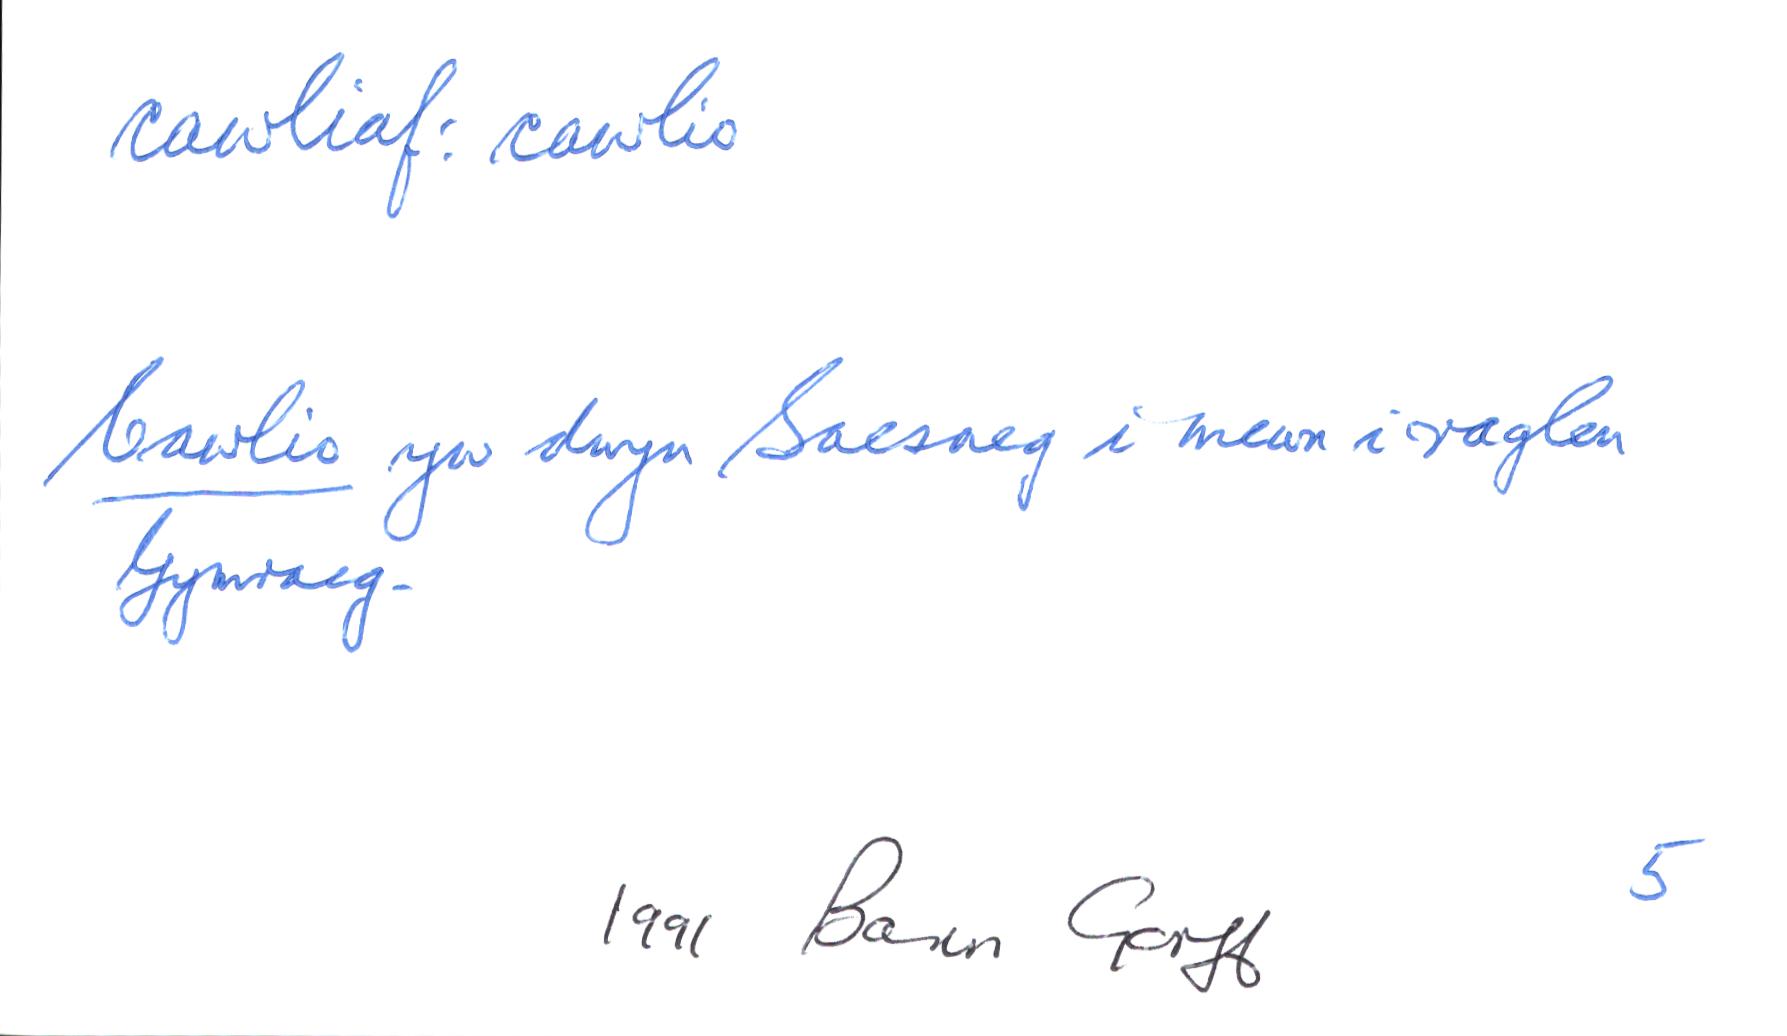 cawliaf: cawlio
Cawlio yw dwyn Saesneg i mewn i raglen
Gymraeg.
5
1991 Barn Gorff